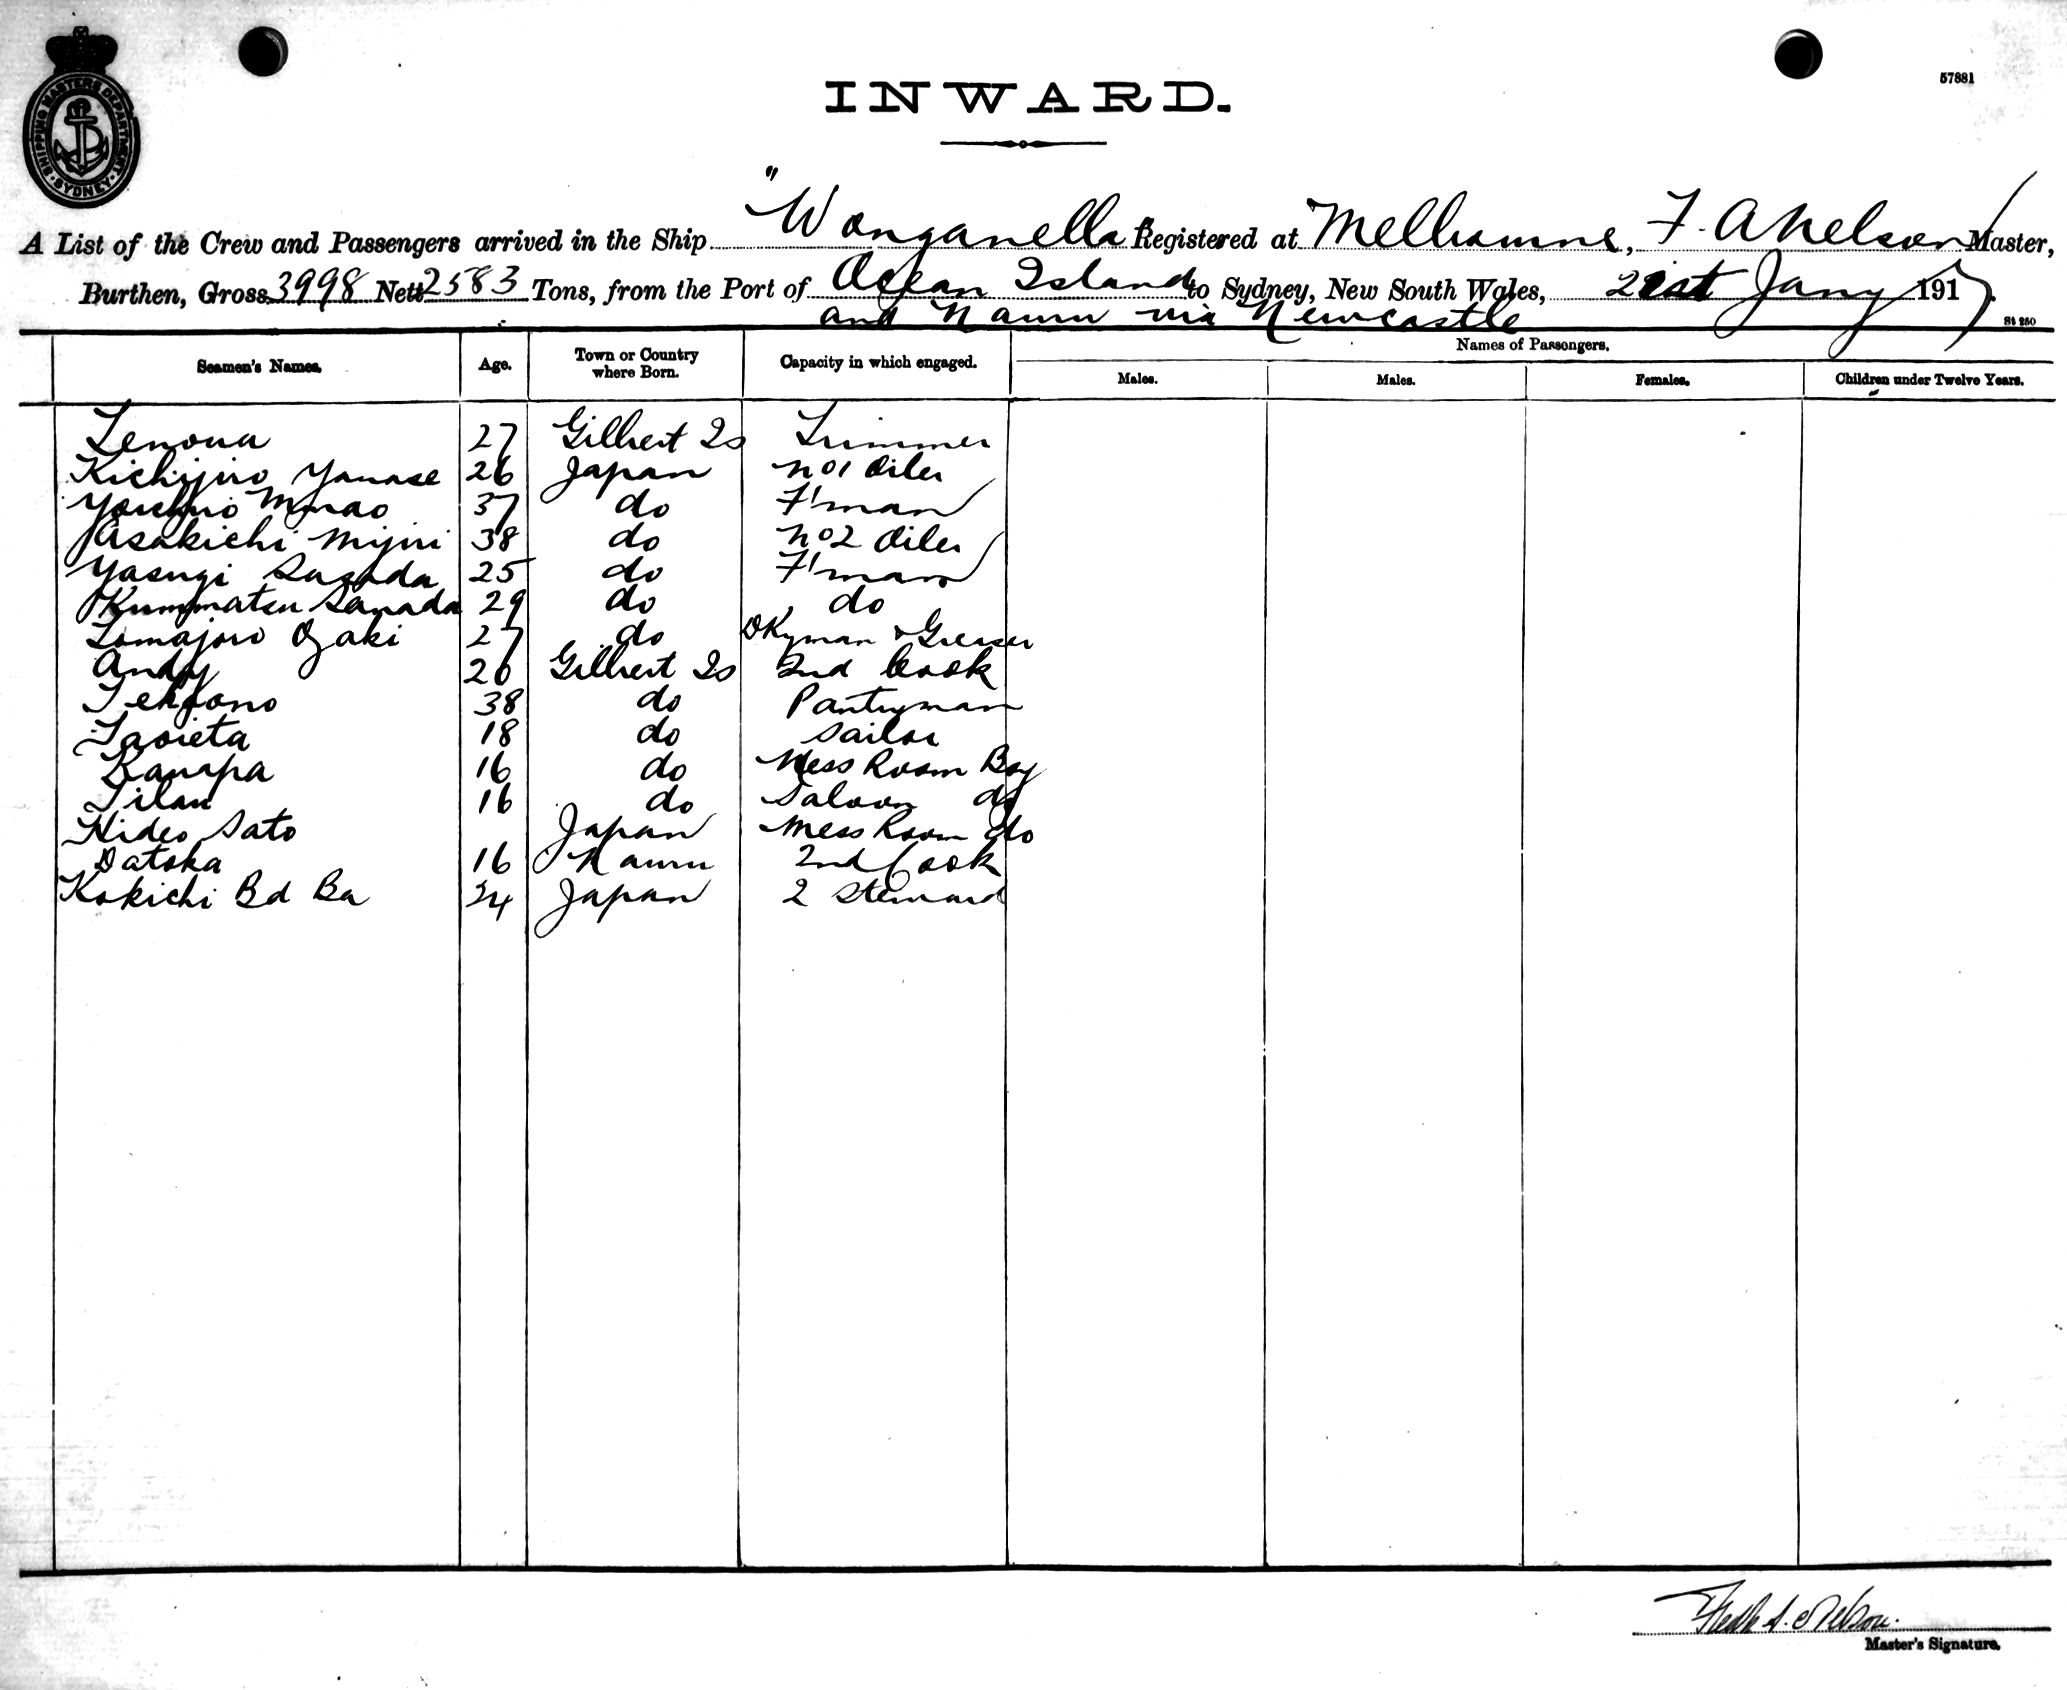 SHIPPING MASTERS DEPARTMENT. SYDNEY.
57881
INWARD.
A List of the Crew and Passengers arrived in the Ship "Wonganella Registered at Melbourne, F. A Nelson Master,
Burthen, Gross 3998 Nett 2583 Tons, from the Port of Ocean Island to Sydney, New South Wales, 21st Jany 1917.
and Nauru via Newcastle
St 250
Seamen's Names. Age. Town or Country where Born. Capacity in which engaged. Names of Passengers.
Males. Males. Females. Children under Twelve Years.
Tenoua 27 Gilbert Is Trimmer
Kichijiro Yanase 26 Japan No1 Oiler
37 do F'man
Asakichi 38 do No2 Oiler
Yasugi 25 do F'man
Kummatsu Sanada 29 do do
Tomajoro Ozaki 27 do Dkyman & Greaser
Andy 26 Gilbert Is 2nd Cook
38 do Pantryman
Taoieta 18 do Sailor
16 do Mess Room Boy
Tilau 16 do Saloon do
Hideo Sato Japan Mess Room do
Datoka 16 Nauru 2nd Cook
Kokichi Bd Ba 34 Japan 2 Steward
Fredk A. Nelson.
Master's Signature.